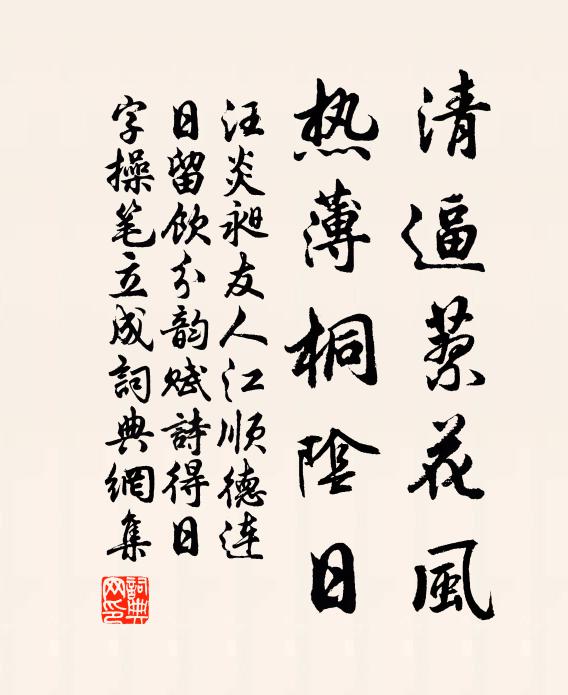 清逼蔡花風
热薄桐陰日
汪炎昶友人江顺德连
日留饮分韵赋詩得日
字操笔立成詞典網集
詞典网印